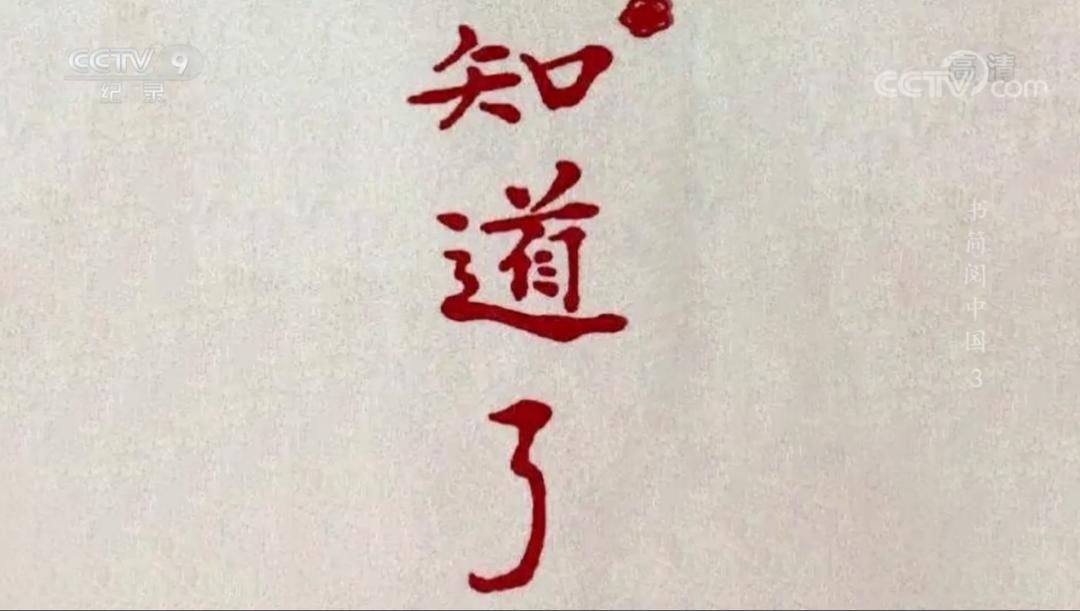 CCTV 9
纪录
高清
CCTV.com
知
道
了
书简阅中国 3